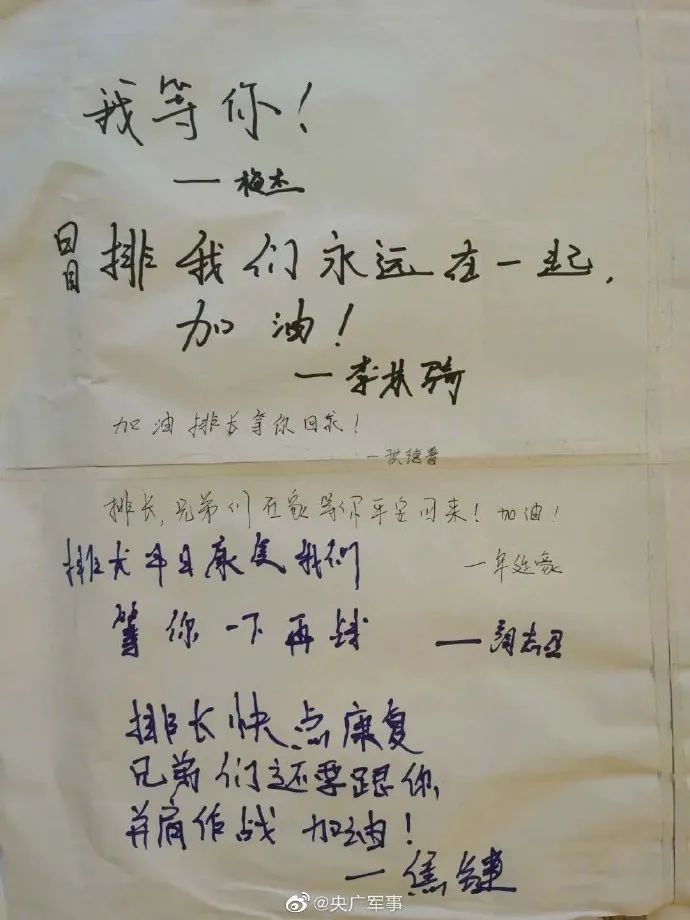 我等你！
—梅杰
冒排我们永远在一起，
加油！
—李林骑
加油排长等你回来！
排长，兄弟们在家等你平安回来！加油！
排长早日康复我们
等你一下再战
排长快点康复
兄弟们还要跟你
并肩作战 加油！
—焦键
@央广军事